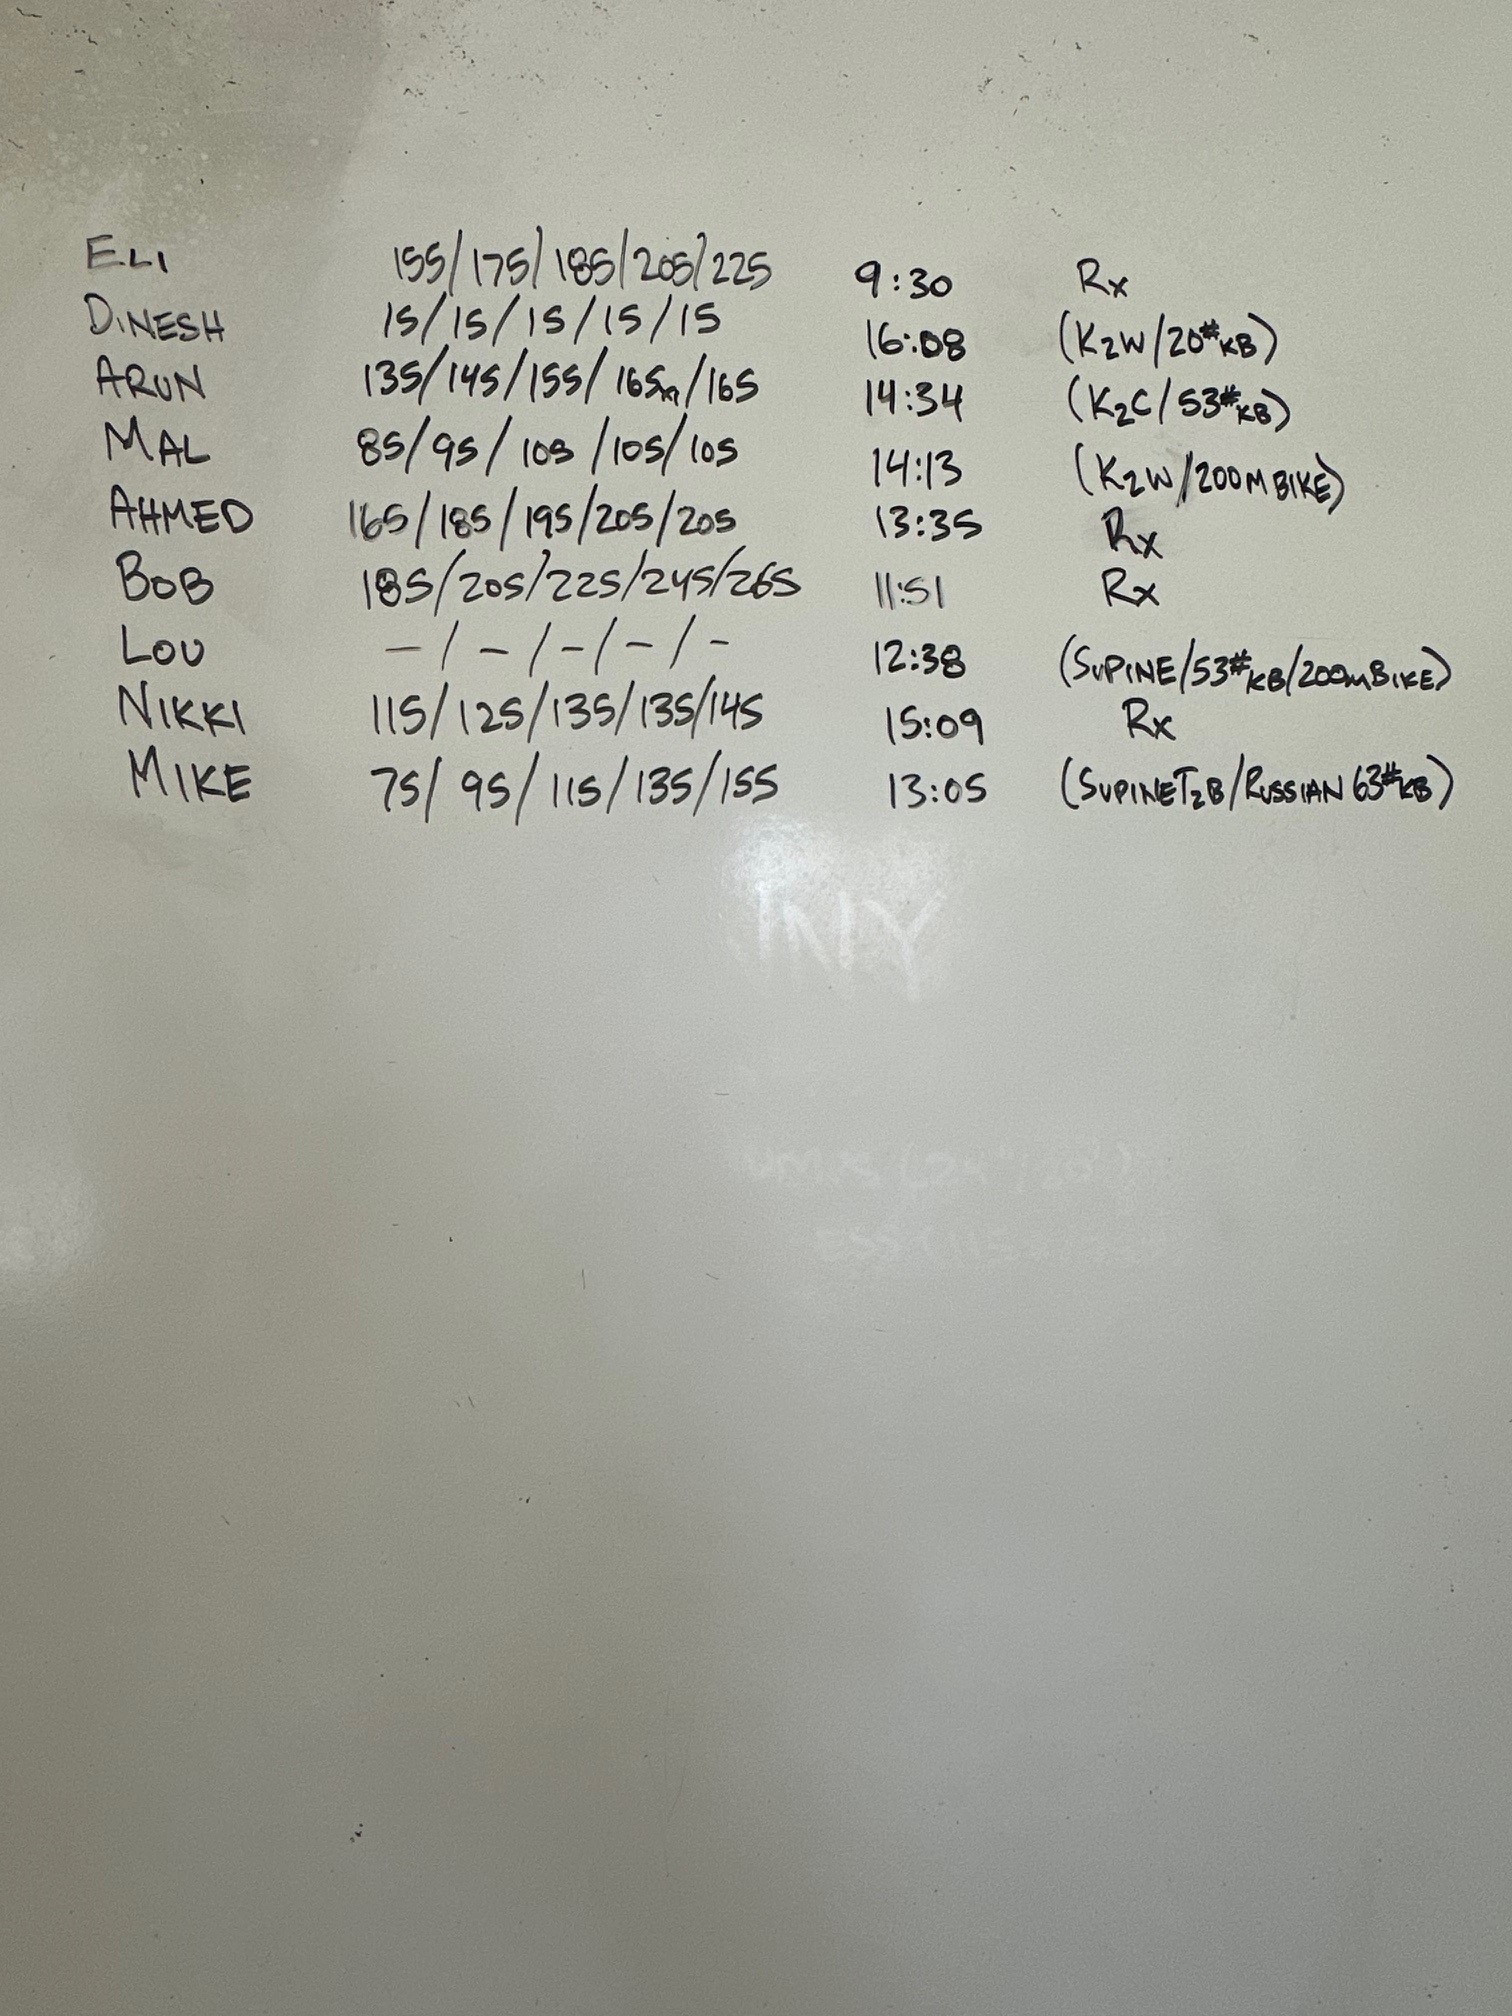 ELI 155/175/185/205/225 9:30 Rx
DINESH 15/15/15/15/15 16:08 (K2W/20#KB)
ARUN 135/145/155/165m/165 14:34 (K2C/53#KB)
MAL 85/95/105/105/105 14:13 (K2W/200M BIKE)
AHMED 165/185/195/205/205 13:35 Rx
BOB 185/205/225/245/265 11:51 Rx
LOU -/-/-/-/- 12:38 (SUPINE/53#KB/200mBIKE)
NIKKI 115/125/135/135/145 15:09 Rx
MIKE 75/95/115/135/155 13:05 (SUPINE T2B/RUSSIAN 63#KB)